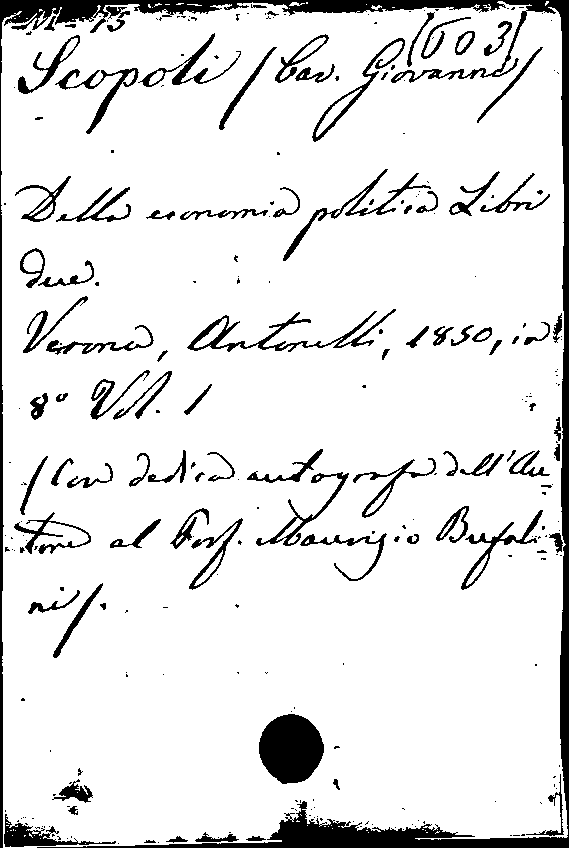 M-75
(603)
Scopoli (Cav. Giovanni)
Della economia politica Libri
due.
Verona, Antonelli, 1850, in
8º Vol. 1
(Con dedica autografa dell'Au
tore al Prof. Maurizio Bufali-
ni).